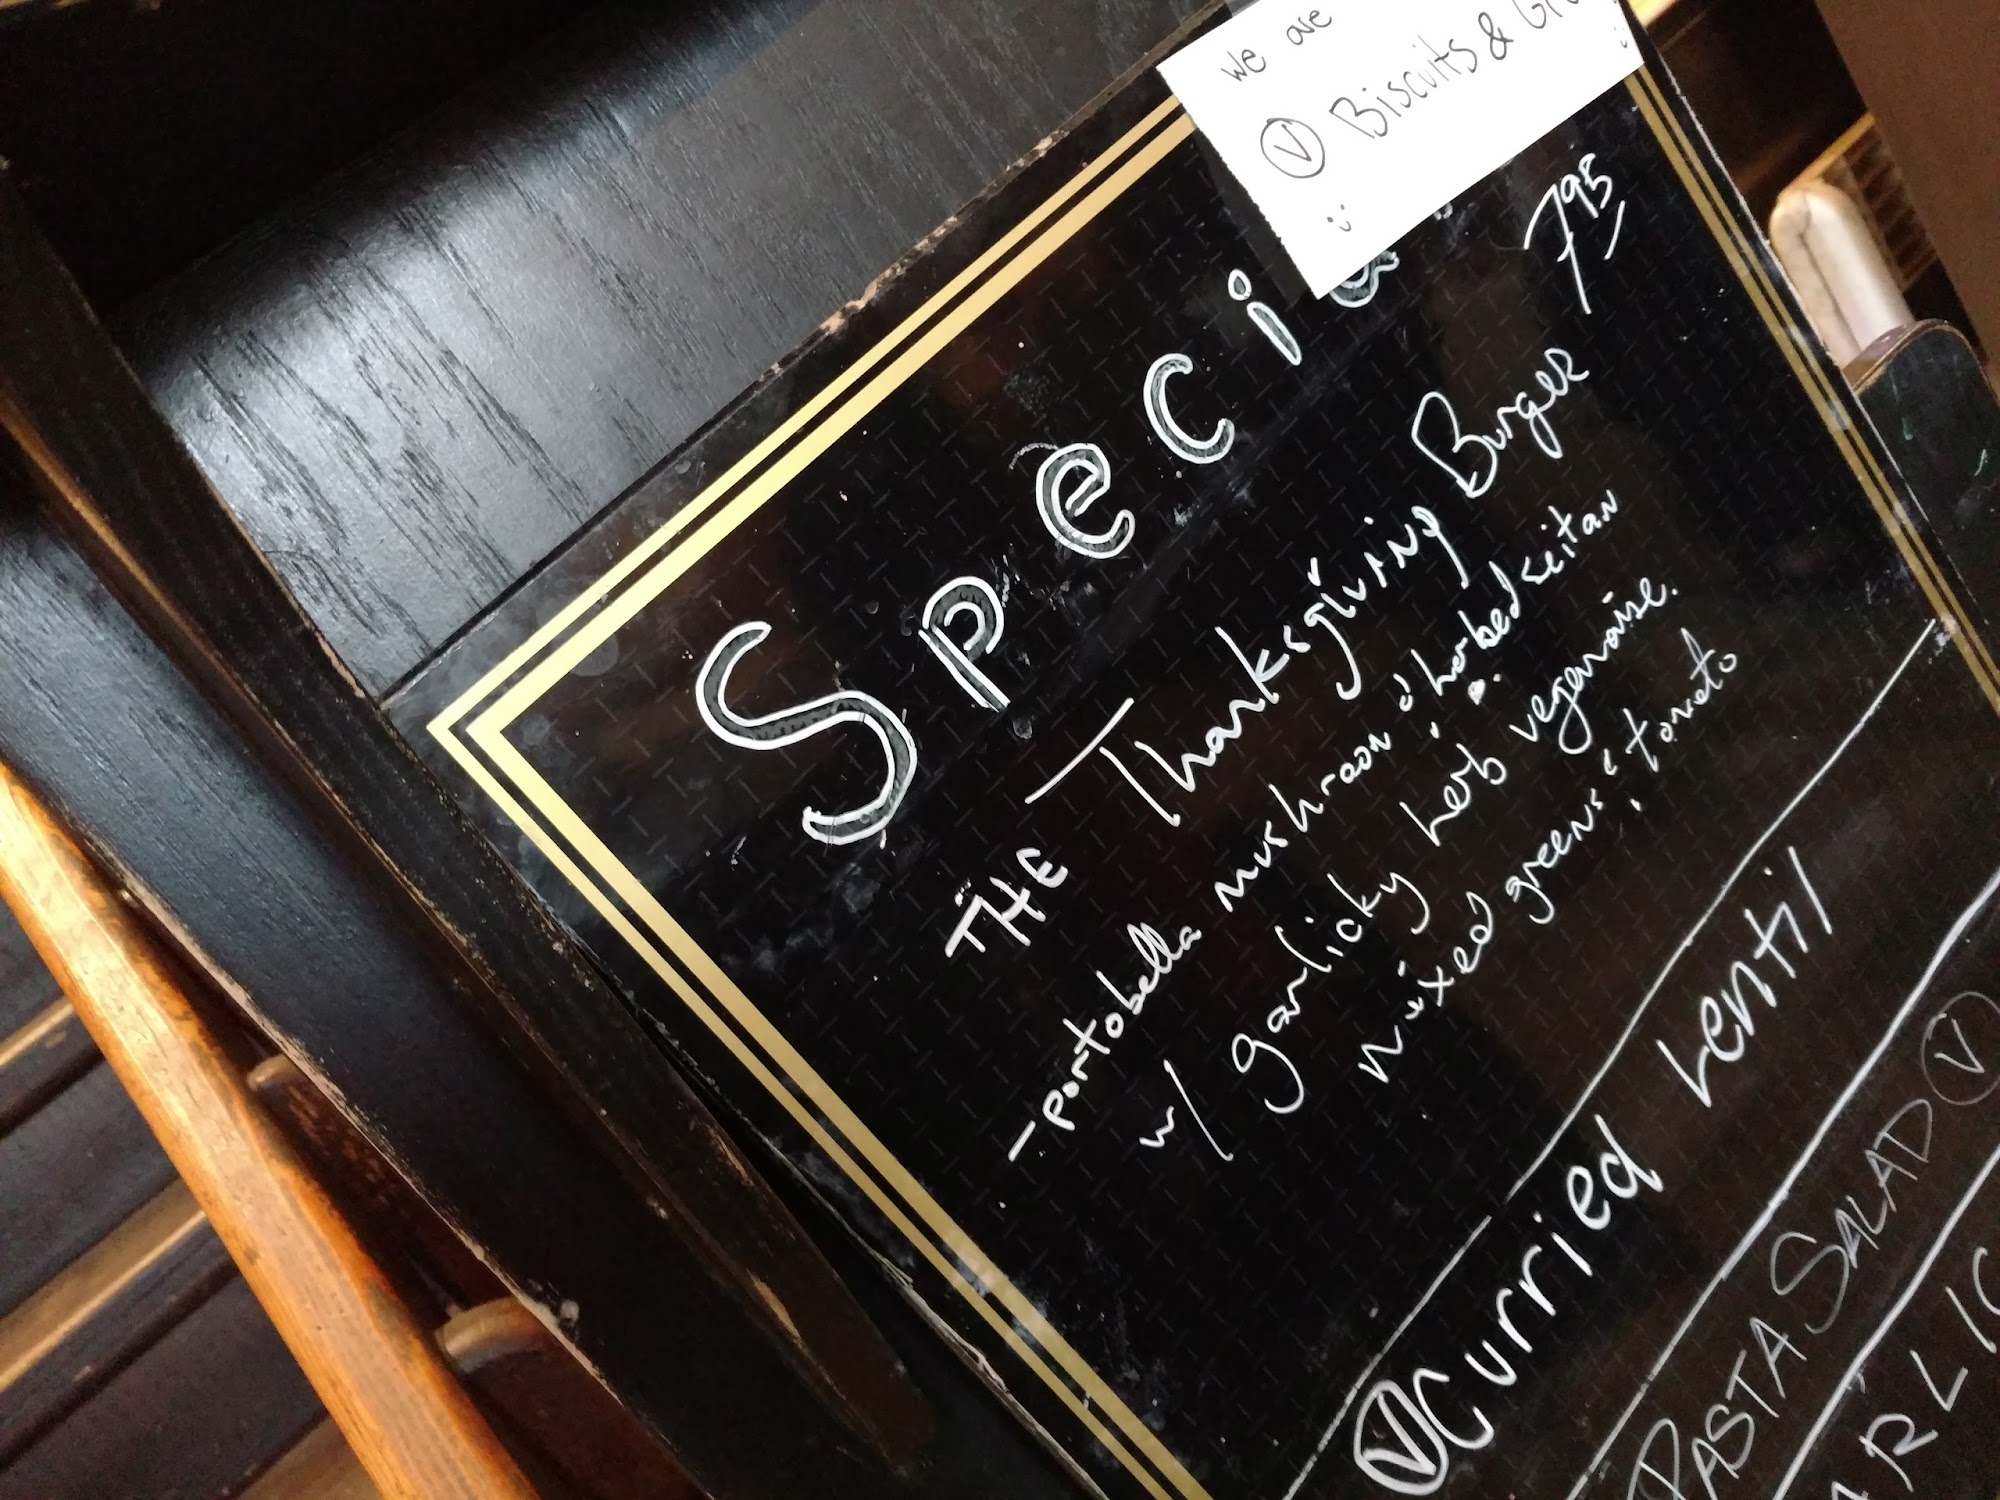 We are
Ⓥ Biscuits &
:)
Specia
7 95
THE Thanksgiving Burger
- portobella mushroom & herbed seitan
w/ garlicky herb vegenaise.
mixed greens & tomato
Ⓥ Curried Lentil
PASTA SALAD Ⓥ